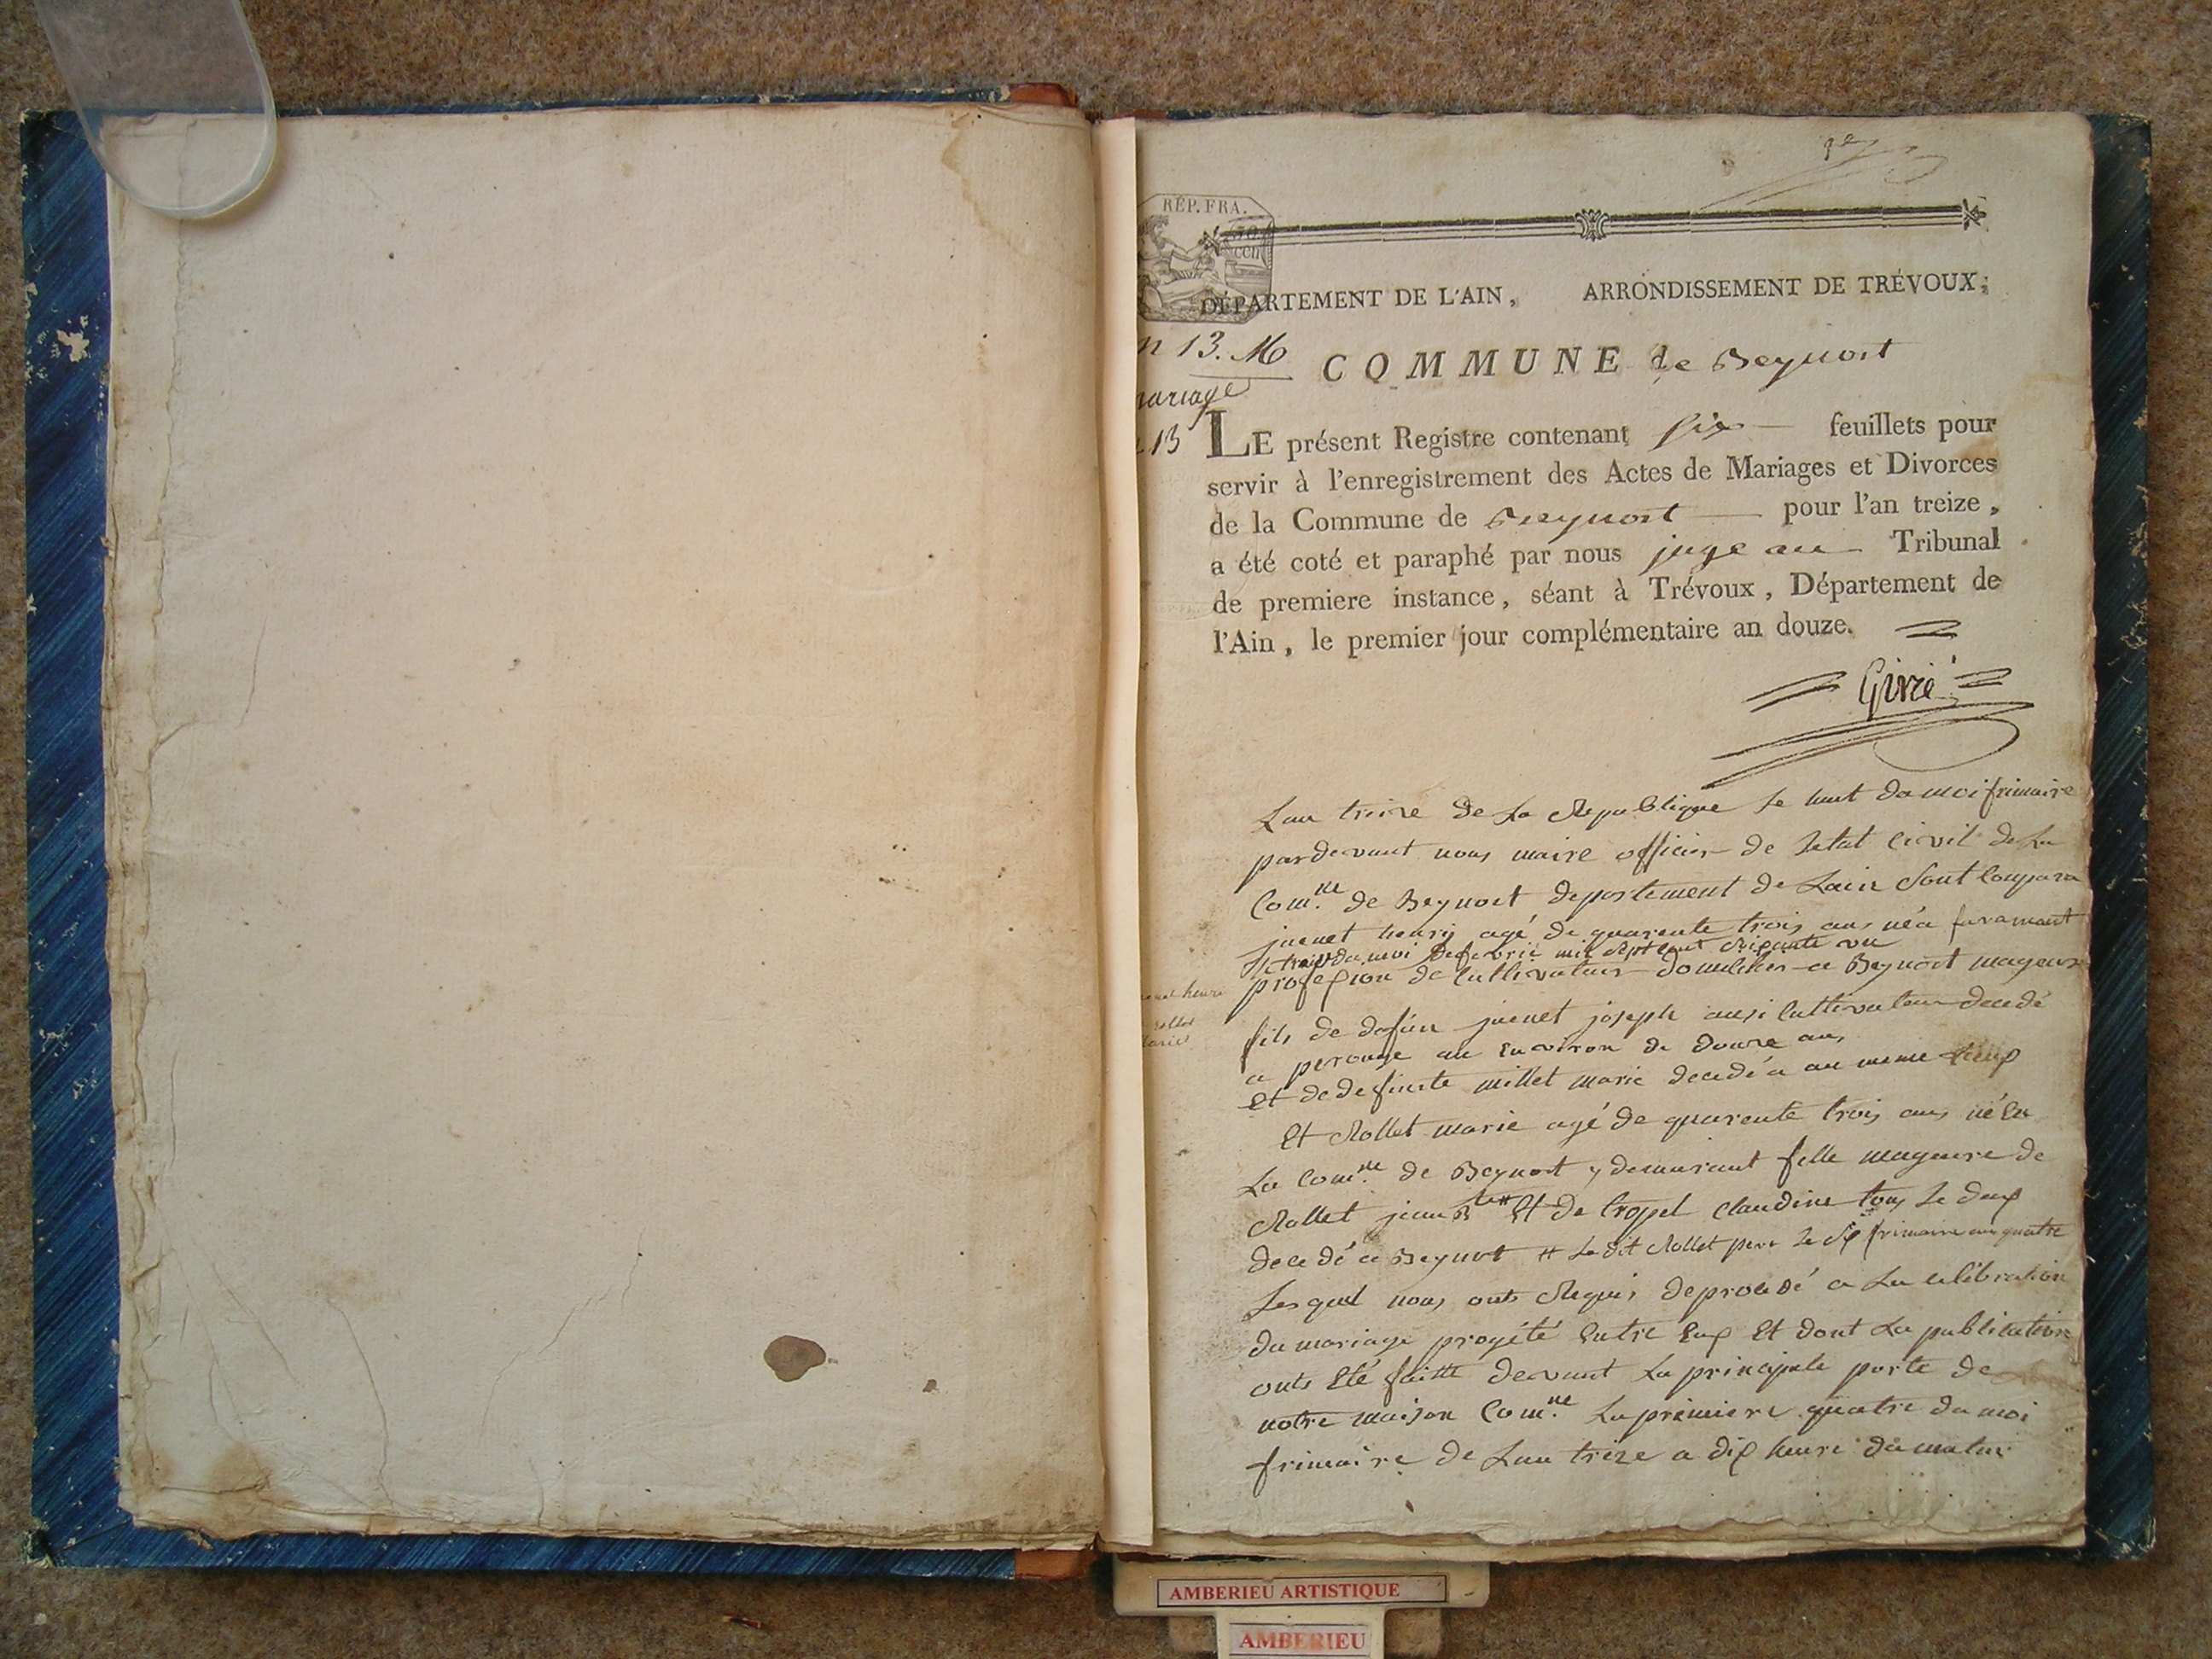 1er
RÉP. FRA.
DÉPARTEMENT DE L'AIN, ARRONDISSEMENT DE TRÉVOUX;
n 13. M
COMMUNE de Beynost
mariage
13
LE présent Registre contenant six feuillets pour
servir à l'enregistrement des Actes de Mariages et Divorces
de la Commune de Beynost pour l'an treize,
a été coté et paraphé par nous juge au Tribunal
de premiere instance, séant à Trévoux, Département de
l'Ain, le premier jour complémentaire an douze.
Girié
Lan treize de La Republique le huit du moi frimaire
pardevant nous maire officier de letat Civil de La
Com.ne de Beynost departement de Lain Sont Compara
juenet henry agé de quarente trois ans né a faramant
le trois du moi de fevrié mil sept cent soixante un
profession de Cultivateur domicilier a Beynost mageur
fils de defun juenet joseph ausi Cultivateur decedé
a perouge au Environ de douze ans
Et de defunte millet marie decedé a au meme temp
Et Rollet marie agé de quarente trois ans né En
La Com.ne de Beynost y demurant fille mageure de
Rollet jean Bte # Et de troppet Claudine tous le deux
decedé a Beynost # Le dit Rollet pere le six frimaire an quatre
Lesquel nous onts Requis de procedé a La celébration
du mariage progété Entre Eux Et dont La publication
onts Eté faitte devant La principale porte de
notre maison Com.ne La premiere quatre du moi
frimaire de Lan treze a dix heure du matin
AMBERIEU ARTISTIQUE
AMBERIEU